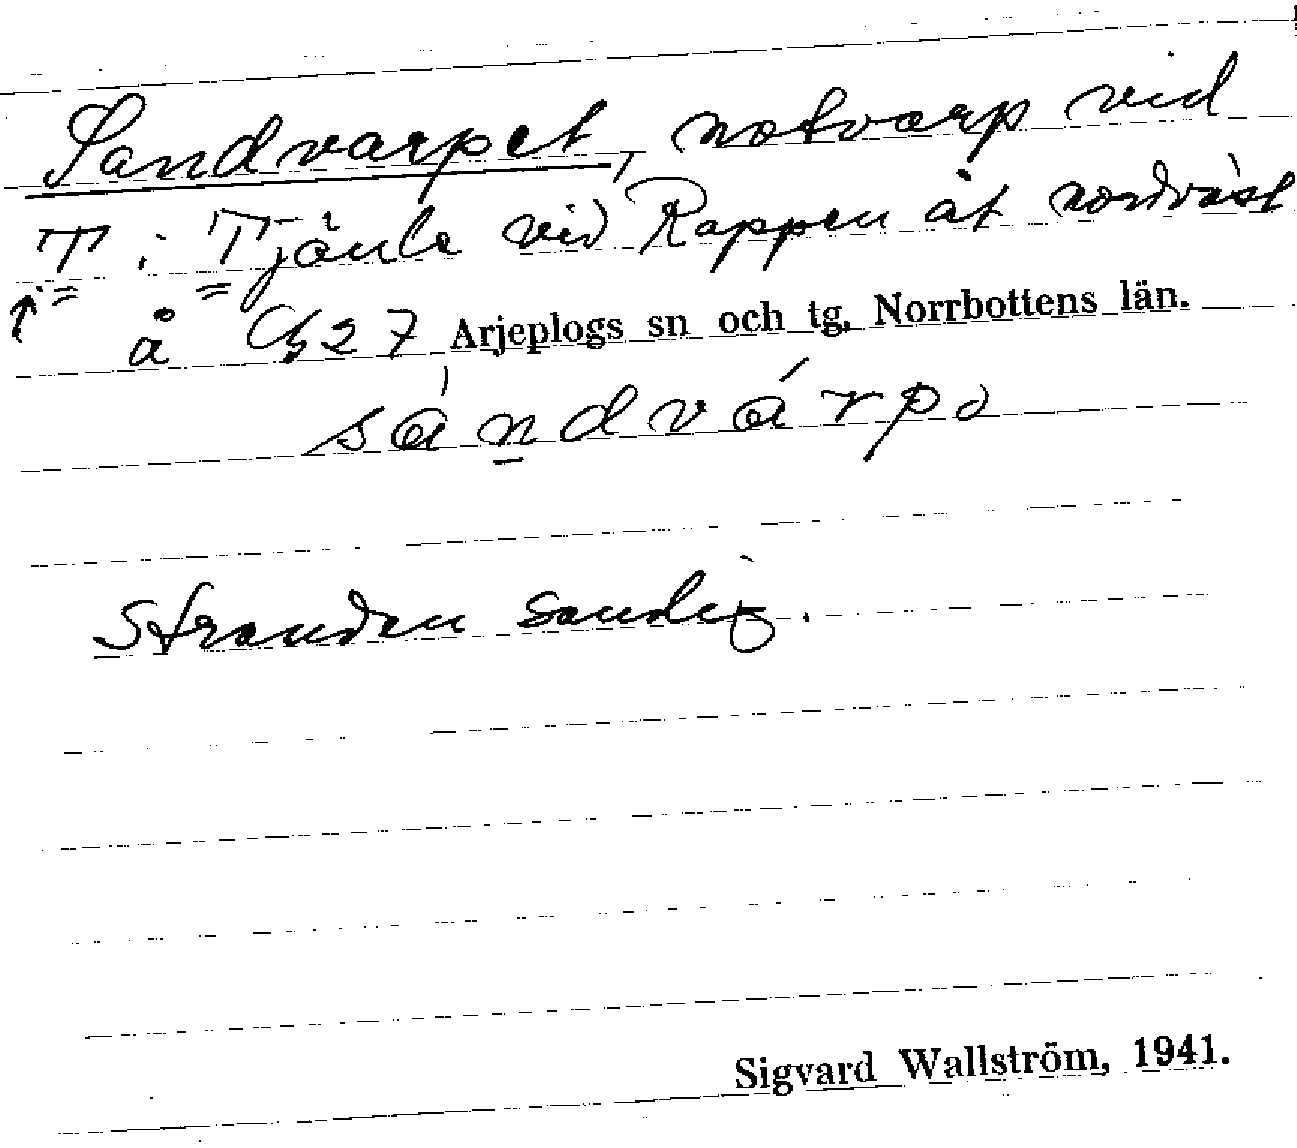 Sandvarpet, notvarp vid
T i Tjåule vid Rappen åt nordväst
å Gb 27 Arjeplogs sn och tg, Norrbottens län.
sándvárpə
Stranden sandig.
Sigvard Wallström, 1941.